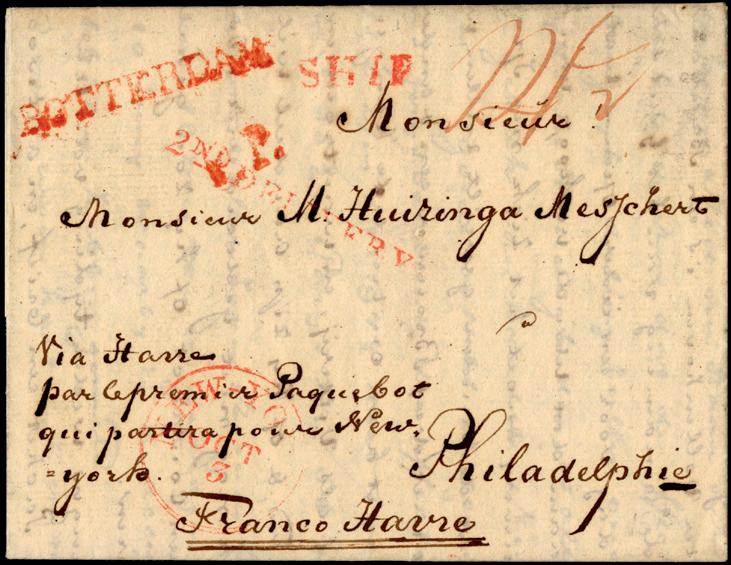 ROTTERDAM
SHIP
Monsieur
P.P.
2ND DELIVERY
Monsieur M. Huizinga Messchert
Via Havre
par le premier Paquebot
qui partira pour New,
=york.
NEW-YO
OCT
3
Philadelphie
Franco Havre